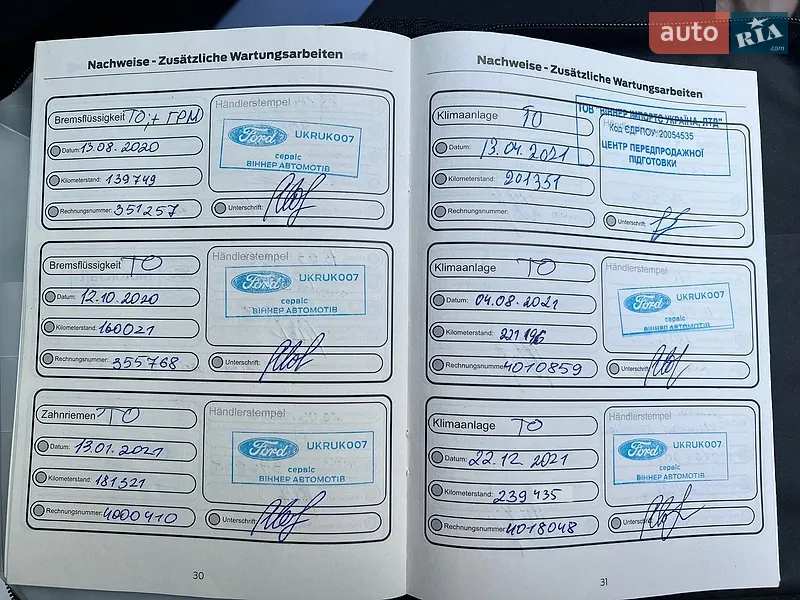 auto RIA.com
Nachweise - Zusätzliche Wartungsarbeiten
Bremsflüssigkeit ТО; + ГРМ
Datum: 13.08.2020
Kilometerstand: 139749
Rechnungsnummer: 351257
Händlerstempel
Ford UKRUK007
сервіс
ВІННЕР АВТОМОТІВ
Unterschrift:
Bremsflüssigkeit ТО
Datum: 12.10.2020
Kilometerstand: 160021
Rechnungsnummer: 355768
Händlerstempel
Ford UKRUK007
сервіс
ВІННЕР АВТОМОТІВ
Unterschrift:
Zahnriemen ТО
Datum: 13.01.2021
Kilometerstand: 181321
Rechnungsnummer: 4000410
Händlerstempel
Ford UKRUK007
сервіс
ВІННЕР АВТОМОТІВ
Unterschrift:
30
Nachweise - Zusätzliche Wartungsarbeiten
Klimaanlage ТО
Datum: 13.04.2021
Kilometerstand: 201351
Rechnungsnummer:
ТОВ "ВІННЕР ІМПОРТС УКРАЇНА, ЛТД"
Код ЄДРПОУ 20054535
ЦЕНТР ПЕРЕДПРОДАЖНОЇ
ПІДГОТОВКИ
Unterschrift:
Klimaanlage ТО
Datum: 04.08.2021
Kilometerstand: 221196
Rechnungsnummer 4010859
Händlerstempel
Ford UKRUK007
сервіс
ВІННЕР АВТОМОТІВ
Unterschrift:
Klimaanlage ТО
Datum: 22.12.2021
Kilometerstand: 239435
Rechnungsnummer 4018048
Händlerstempel
Ford UKRUK007
сервіс
ВІННЕР АВТОМОТІВ
Unterschrift:
31